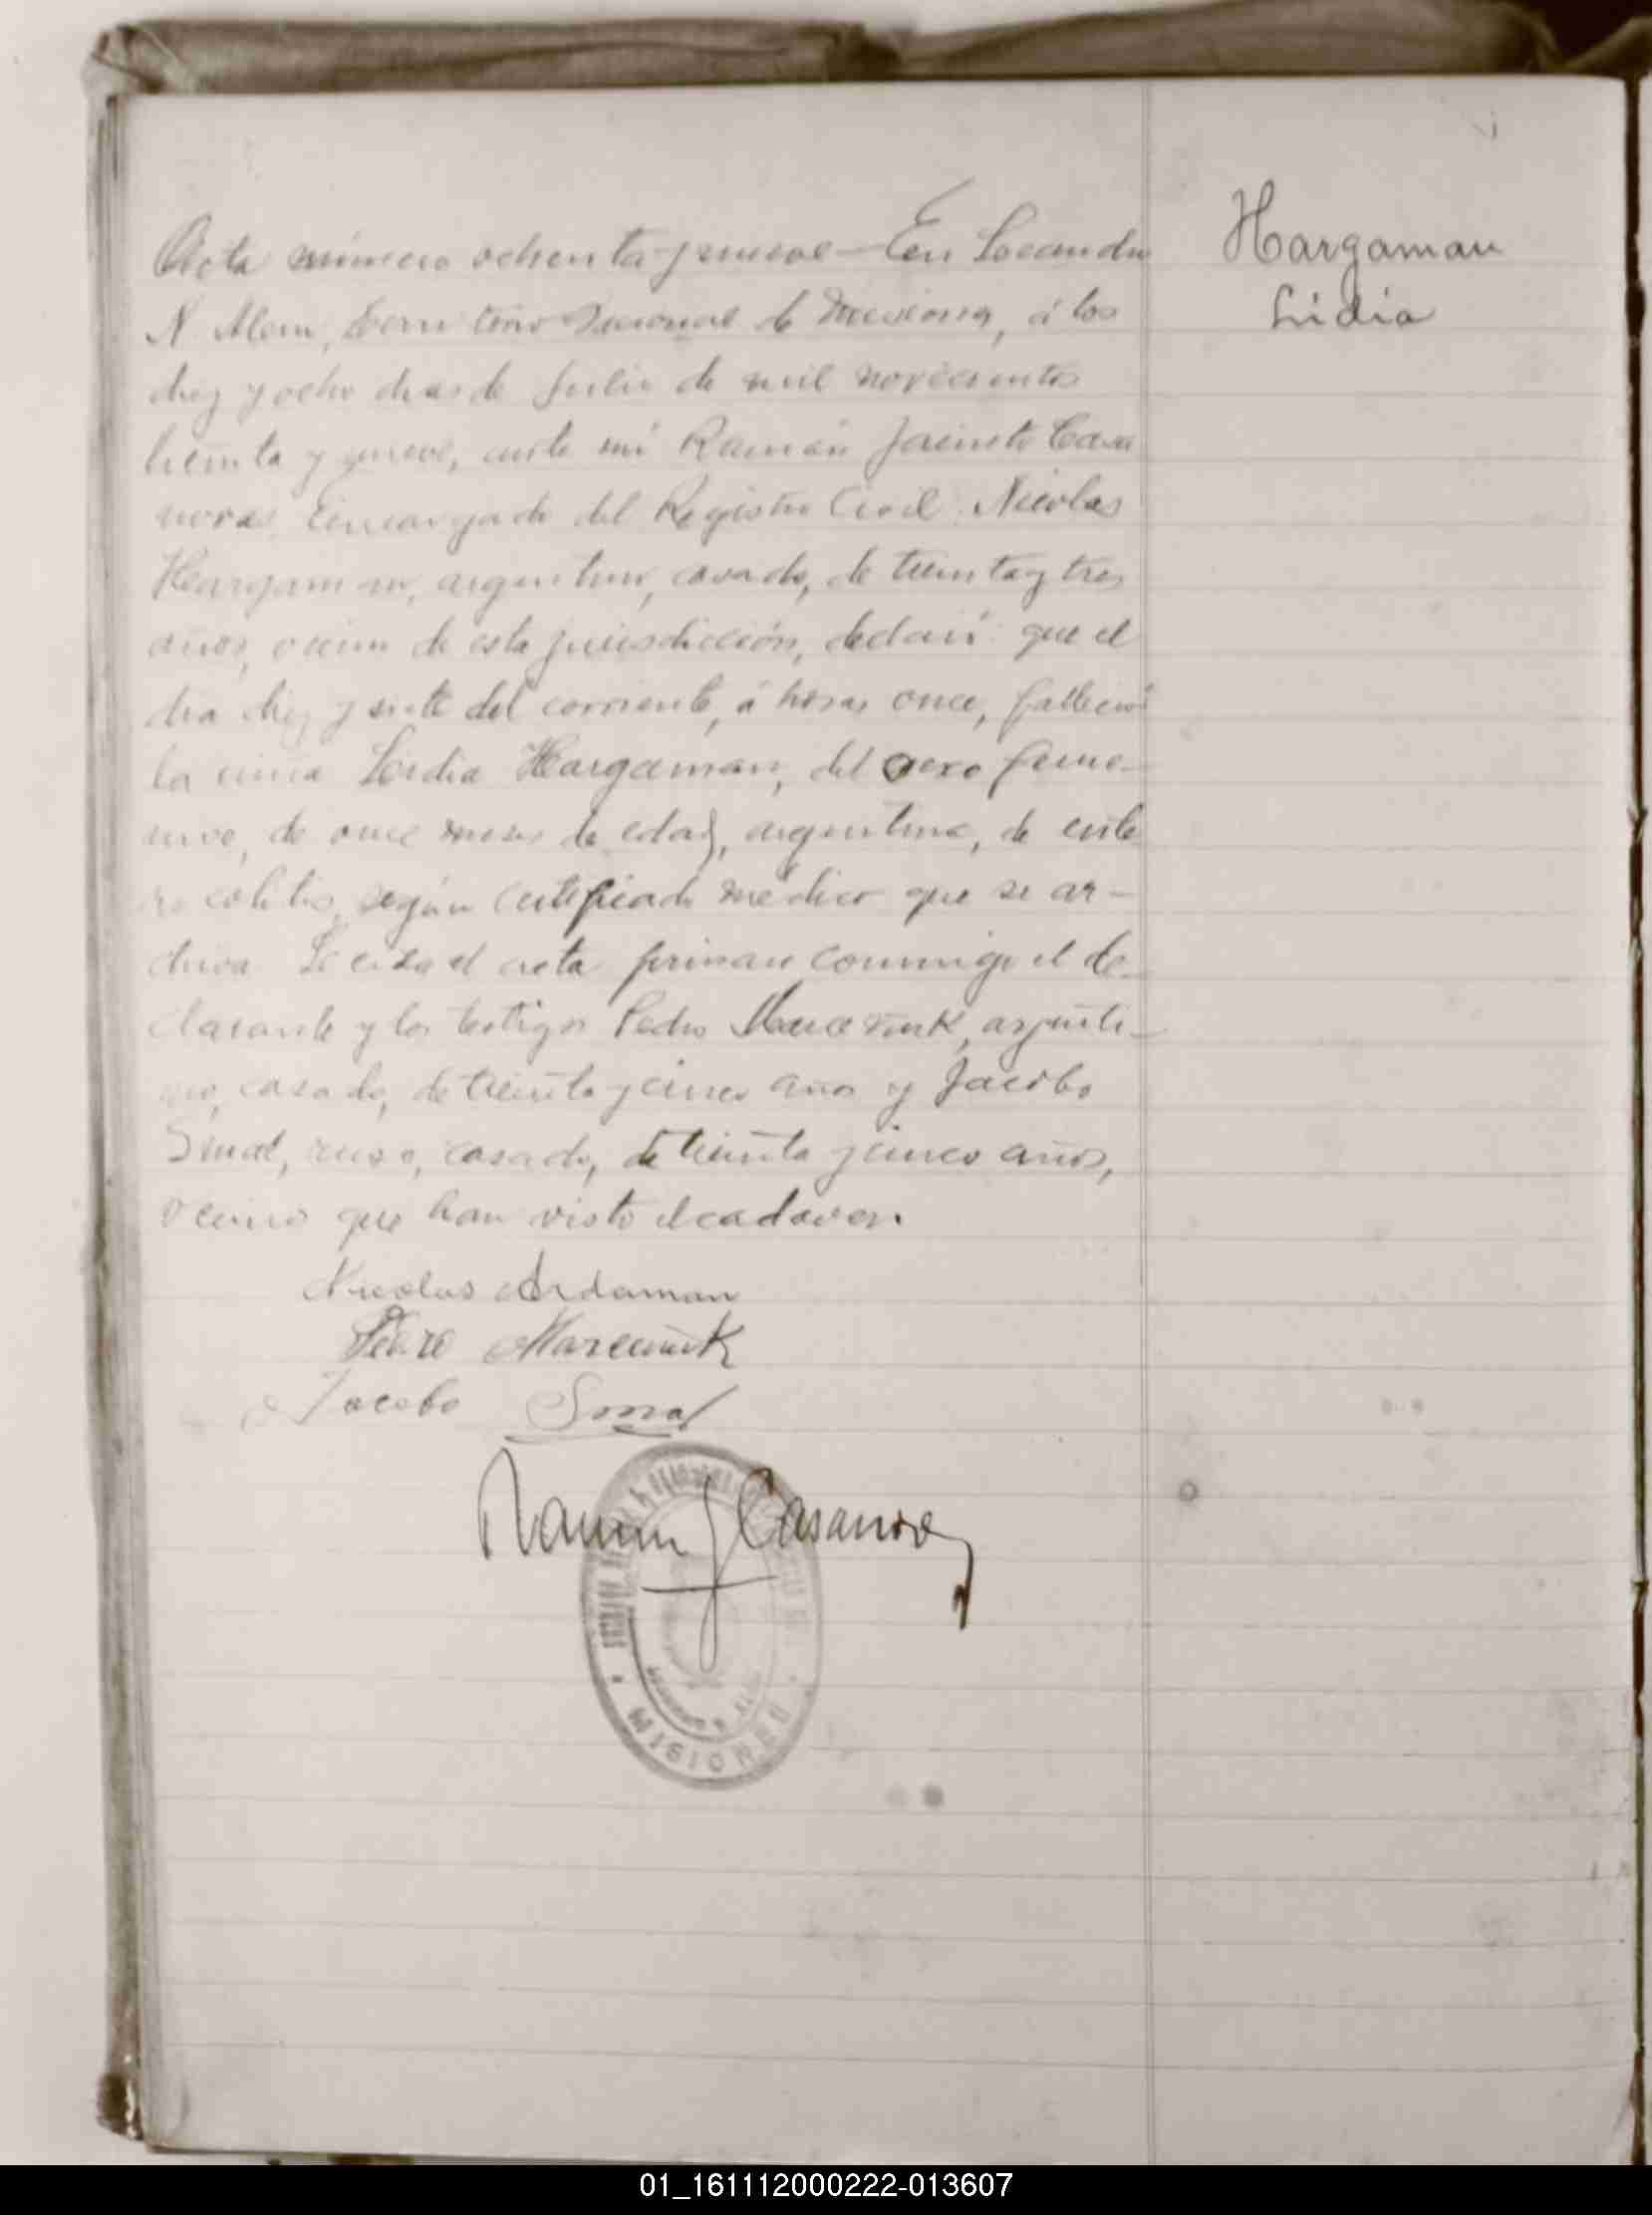 Hargaman
Lidia
Acta número ochenta y nueve – En Leandro
N. Alem, Territorio Nacional de Misiones, á los
diez y ocho dias de Julio de mil novecientos
treinta y nueve, ante mi Ramón Jacinto Casa
novas Encargado del Registro Civil: Nicolas
Hargaman, argentino, casado, de treinta y tres
años, vecino de esta jurisdicción, declaró: que el
dia diez y siete del corriente, á horas once, falleció
la niña Lidia Hargaman, del sexo feme-
nino, de once meses de edad, argentina, de ente
ro colitis, según certificado médico que se ar-
chiva. Leida el acta firman conmigo el de-
clarante y los testigos Pedro Marceniuk, argenti-
no, casado, de treinta y cinco años y Jacobo
Smal, ruso, casado, de treinta y cinco años,
vecino que han visto el cadaver.
Nicolas Ardaman
Pedro Marceniuk
Jacobo Smal
Ramon J Casanova
MISIONES
01_161112000222-013607